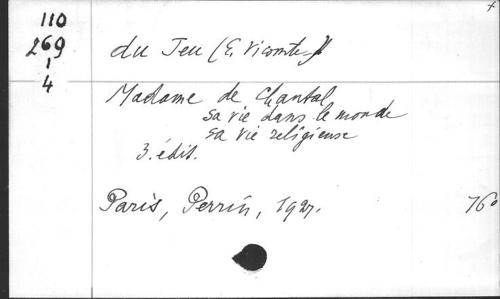 110
269
1
4
du Jeu (E. Vicomte)
Madame de Chantal
sa vie dans le monde
sa vie religieuse
3. édit.
Paris, Perrin, 1927.
76°